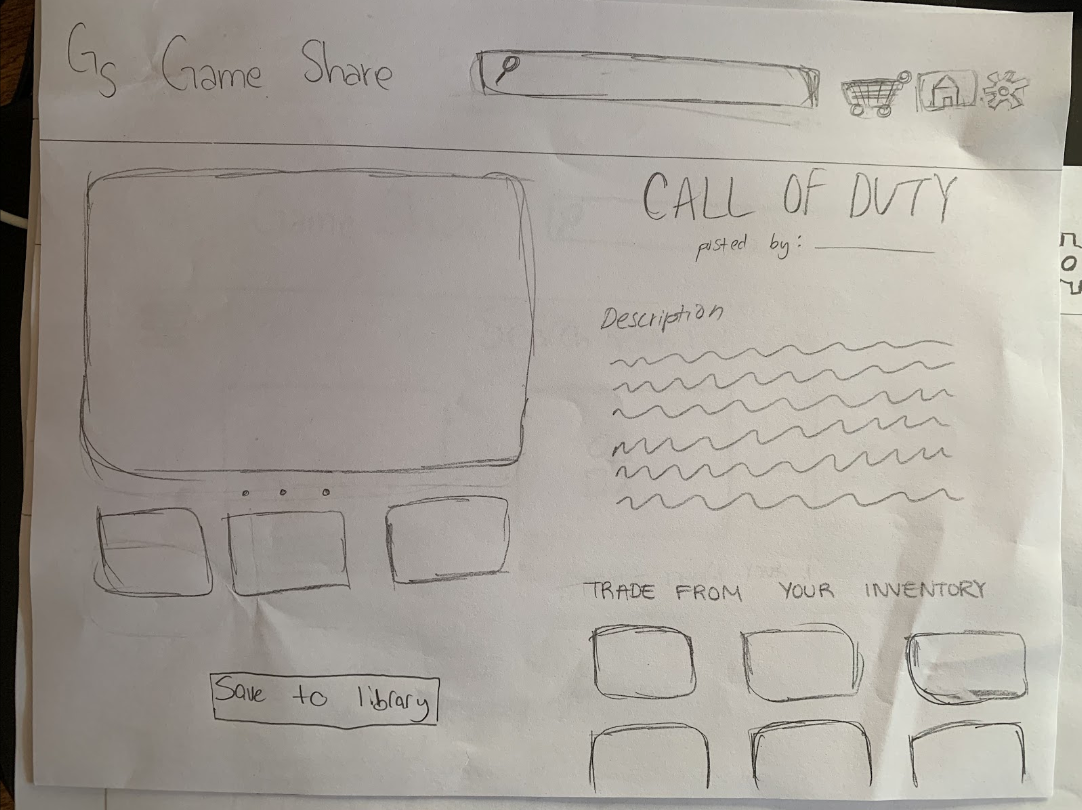 Gs Game Share
CALL OF DUTY
posted by:
Description
TRADE FROM YOUR INVENTORY
Save to library